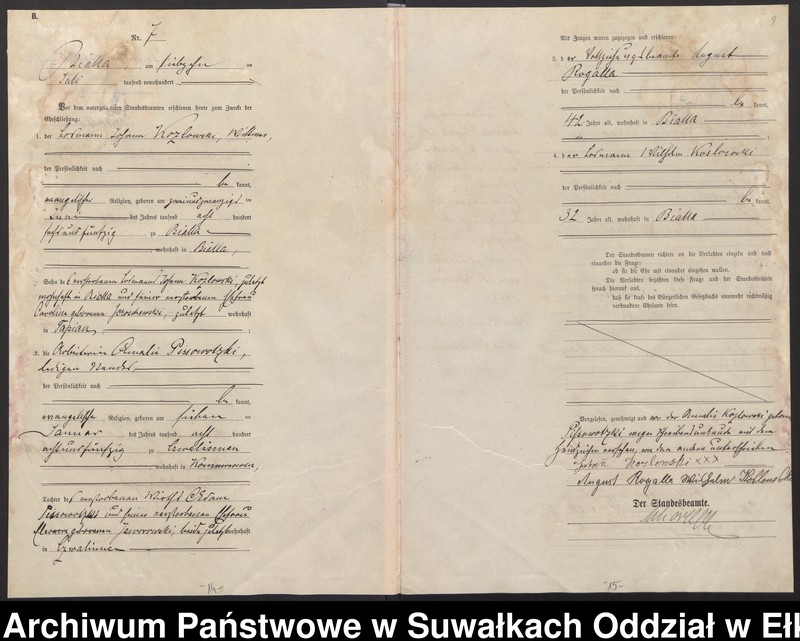 B.
Nr. 7
Bialla, am siebzehn ten
Juli tausend neunhundert
Vor dem unterzeichneten Standesbeamten erschienen heute zum Zwecke der
Eheschließung:
1. der Losmann Johann Kozlowski, Wittwer,
der Persönlichkeit nach
be kannt,
evangelischer Religion, geboren am zweiundzwanzigsten
Juni des Jahres tausend acht hundert
sechsundfünfzig zu Bialla
, wohnhaft in Bialla,
Sohn des verstorbenen Losmanns Johann Kozlowski, zuletzt
wohnhaft in Bialla und seiner verstorbenen Ehefrau
Caroline geborenen zuletzt wohnhaft
in
2. die Arbeiterin Amalie Pissowotzki,
ledigen Standes,
der Persönlichkeit nach
be kannt,
evangelischer Religion, geboren am sieben ten
Januar des Jahres tausend acht hundert
achtundfünfzig zu
, wohnhaft in
Tochter des verstorbenen Wirths Adam
Pissowotzki und seiner verstorbenen Ehefrau
geborenen Jaworowski, beide zuletzt wohnhaft
in
-14-
8
Als Zeugen waren zugezogen und erschienen:
3. der Vollziehungsbeamte August
Rogalla
der Persönlichkeit nach
be kannt,
42 Jahre alt, wohnhaft in Bialla
4. der Losmann Wilhelm Koslowski
der Persönlichkeit nach
be kannt,
32 Jahre alt, wohnhaft in Bialla
Der Standesbeamte richtete an die Verlobten einzeln und nach
einander die Frage:
ob sie die Ehe mit einander eingehen wollen.
Die Verlobten bejahten diese Frage und der Standesbeamte
sprach hierauf aus,
daß sie kraft des Bürgerlichen Gesetzbuchs nunmehr rechtmäßig
verbundene Eheleute seien.
Vorgelesen, genehmigt und von der Amalie Kozlowski geborenen
Pissowotzki wegen Schreibensunkunde mit dem
Handzeichen versehen, von den andern unterschrieben.
Johann Kozlowski xxx
August Rogalla Wilhelm
Der Standesbeamte.
-15-
Archiwum Państwowe w Suwałkach Oddział w Eł